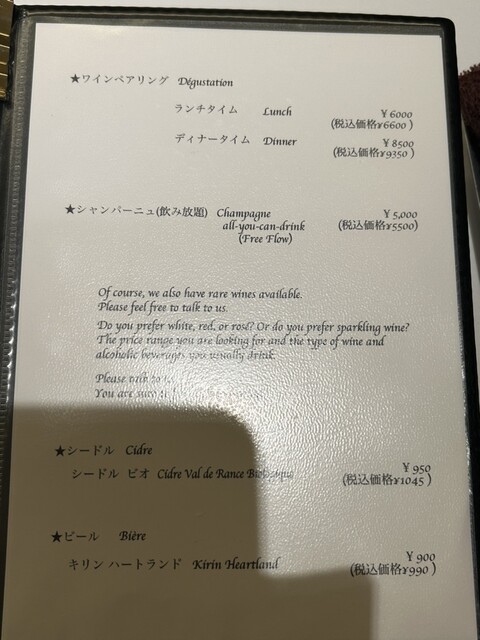 ★ワインペアリング Dégustation
ランチタイム Lunch ¥6000
(税込価格¥6600 )
ディナータイム Dinner ¥8500
(税込価格¥9350 )
★シャンパーニュ(飲み放題) Champagne ¥5,000
all-you-can-drink (税込価格¥5500)
(Free Flow)
Of course, we also have rare wines available.
Please feel free to talk to us.
Do you prefer white, red, or rosé? Or do you prefer sparkling wine?
The price range you are looking for and the type of wine and
alcoholic beverages you usually drink.
Please talk to
You are
★シードル Cidre
シードル ビオ Cidre Val de Rance ¥950
(税込価格¥1045 )
★ビール Bière
キリン ハートランド Kirin Heartland ¥900
(税込価格¥990 )